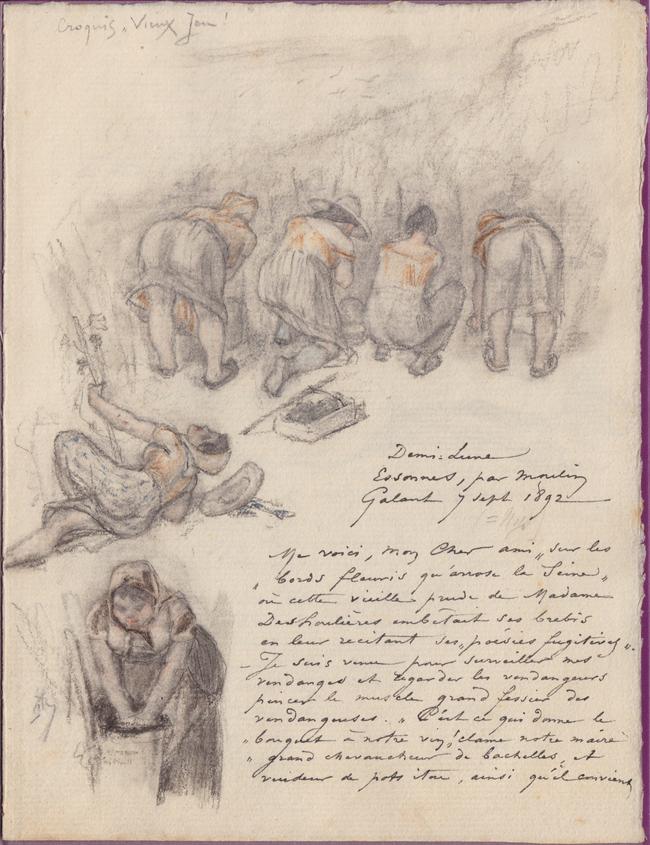 Croquis, Vieux Jeu!
Demi-Lune
Essonnes, par Moulin
Galant 7 sept 1892
Me voici, mon Cher ami „ sur les
„ bords fleuris qu'arrose la Seine „
où cette vieille prude de Madame
Deshoulières embêtait ses brebis
en leur recitant ses „ poésies fugitives „.
- Je suis venu pour surveiller mes
vendanges et regarder les vendangeurs
pincer le muscle grand fessier des
vendangeuses. „ C'est ce qui donne le
„ bouquet à notre vin", clame notre maire
„ grand chevaucheur de bachelles, et
vuideur de pots itou, ainsi qu'il convient,